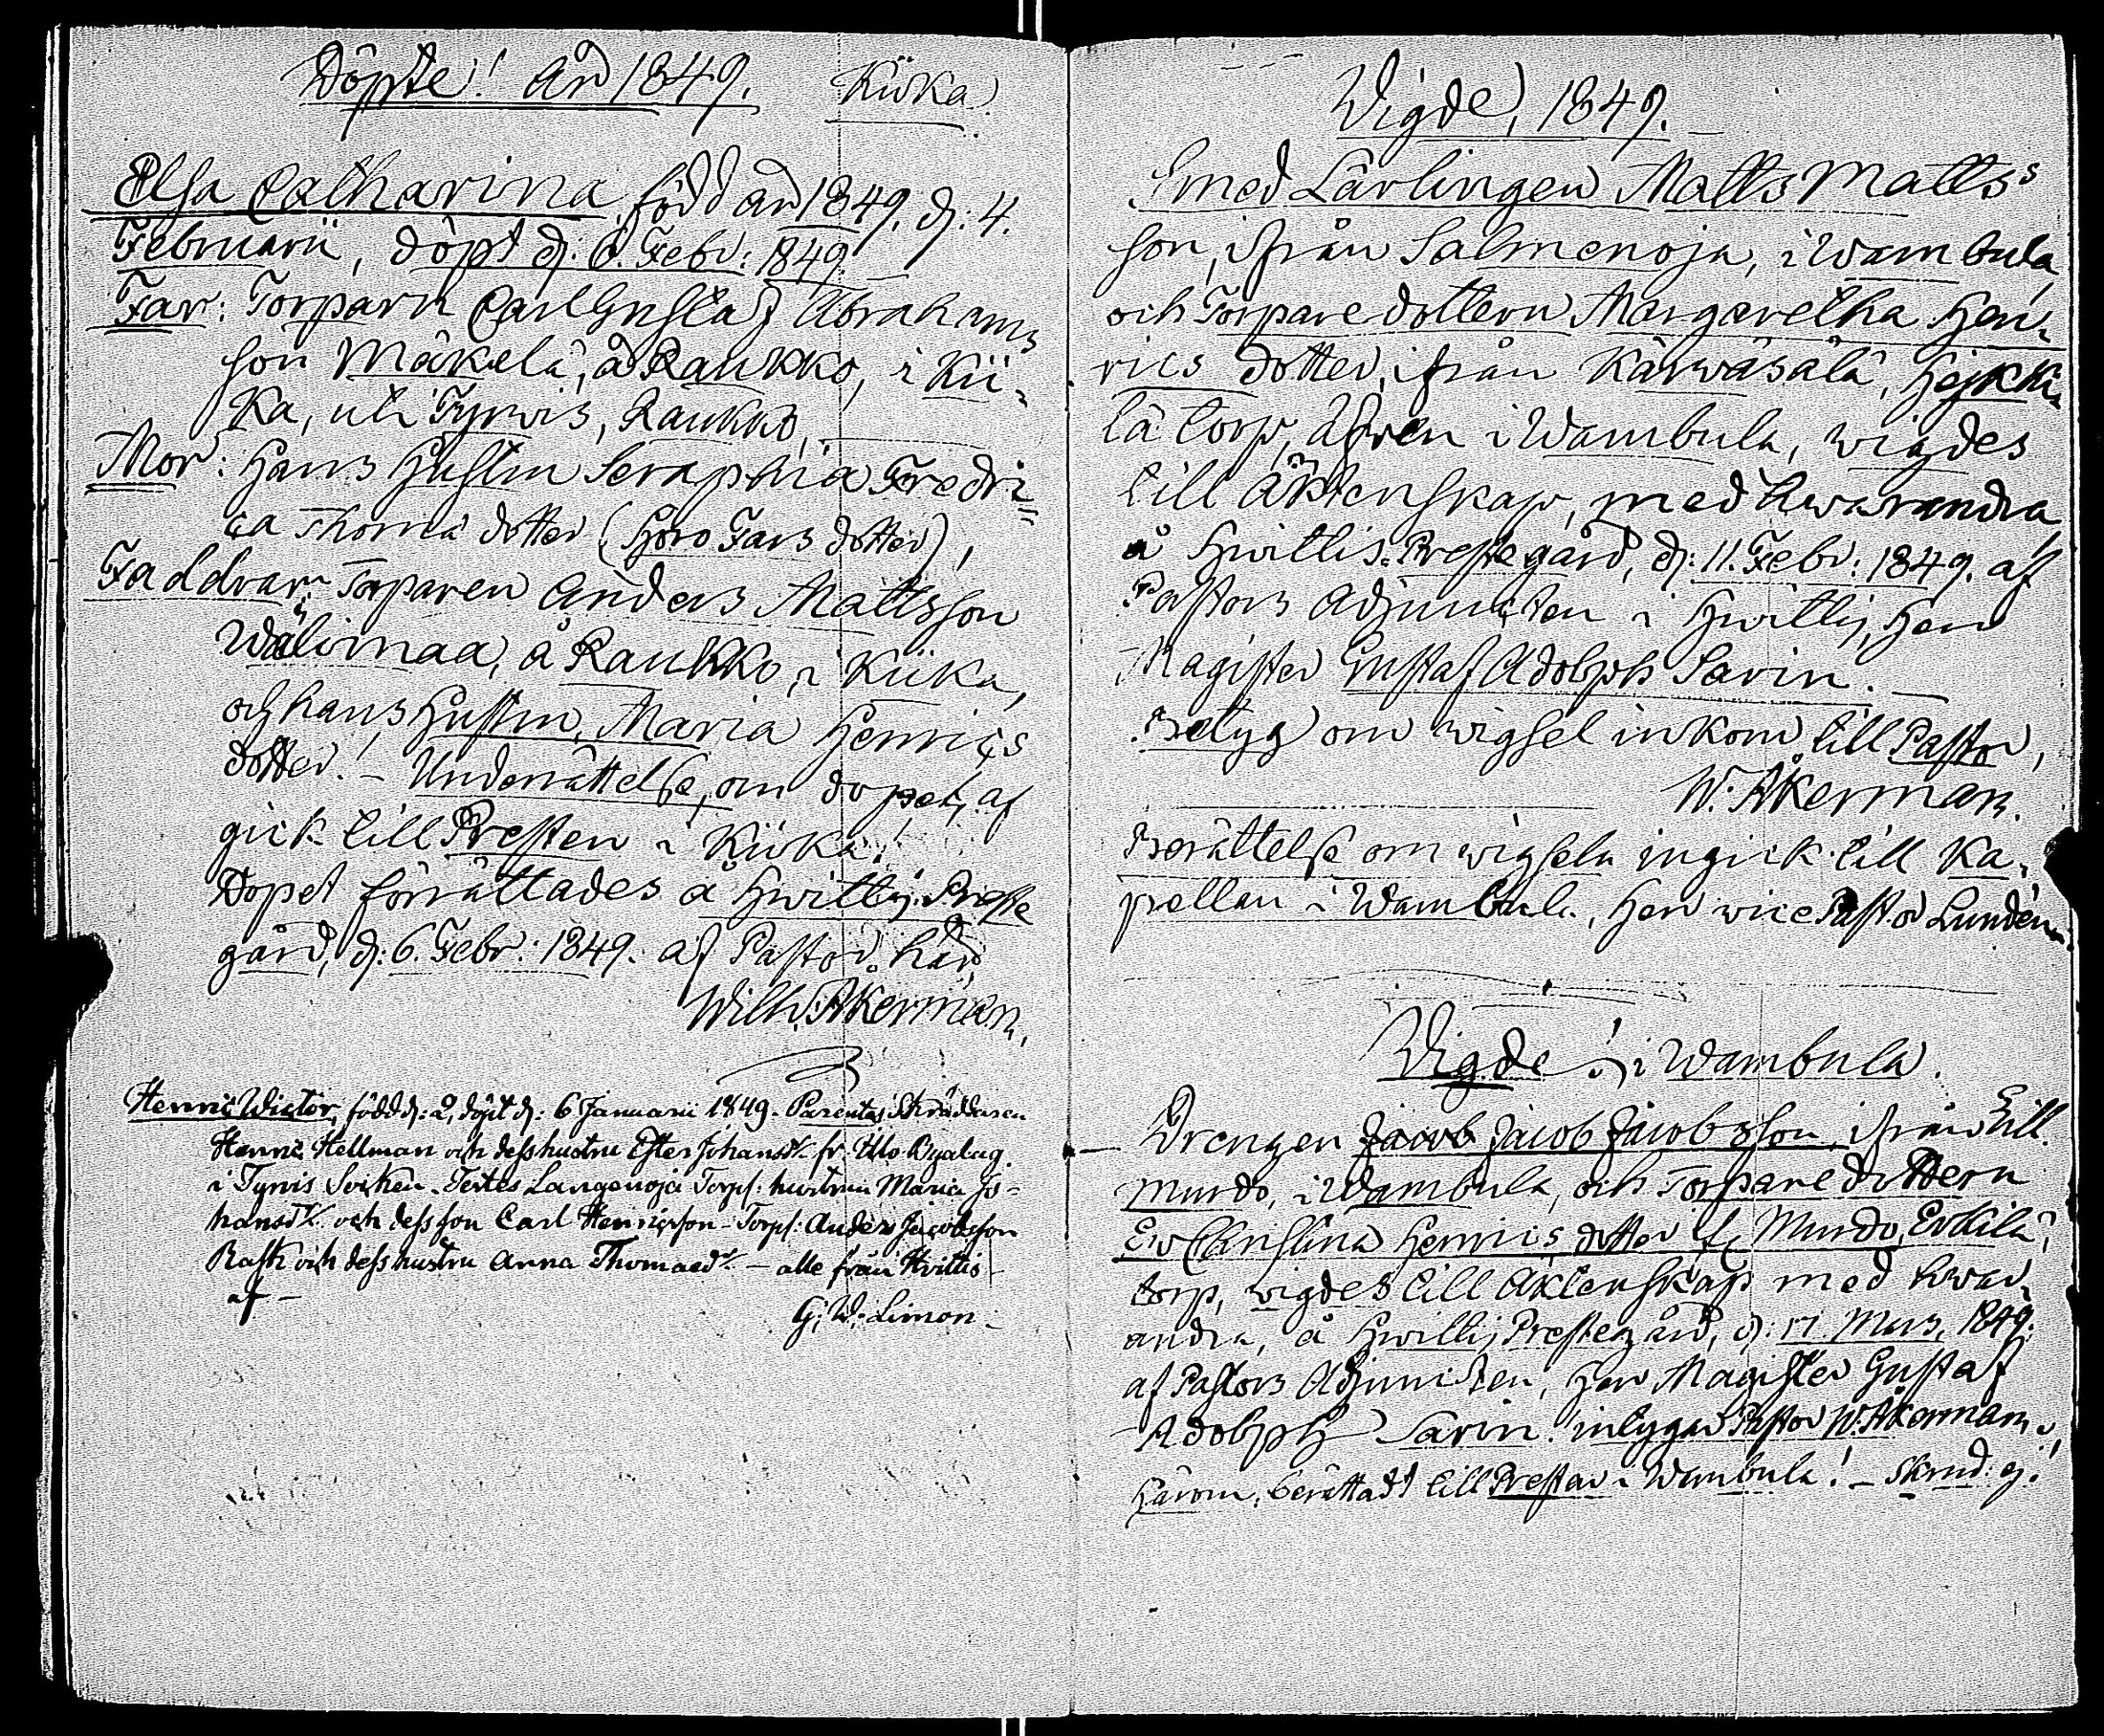 Döpte! år 1849. Kiika
Elsa Catharina, född år 1849. d: 4.
Februarii, döpt d: 6. Febr: 1849. —
Far: Torparn Carl Gustaf Abrahams
son Mäkelä, å Raukko, i Kii-
ka, uti Tyrvis, Raukko,
Mor: Hans Hustru Seraphia Fredri-
ca Thomä dotter (Horo Fars dotter),
Faddrar: Torparen Anders Mattsson
Wälimaa, å Raukko, i Kiika,
och hans Hustru, Maria Henrics
dotter! – Underrättelse, om dopet, af
gick till Presten i Kiika!
Dopet förrättades å Hwittis Preste
gård, d: 6. Febr: 1849. af Pastor här,
Wilh. Åkerman,
Henric Wictor, född d: 2, döpt d: 6 Januarii 1849. Parentes Skräddaren
Henric Hellman och dess hustru Ester Johansdr fr. Ulo Byalag
i Tyrvis Socken. Testes Langenoja Torps: hustrun Maria Jo-
hansdr och dess son Carl Henricsson – Torps: Anders Jacobsson
Rask och dess hustru Anna Thomaedr – alle från Hvittis –
af –
G. W. Limon.
Wigde, 1849. —
Smed Lärlingen Matts Mattss
son, ifrån Salmenoja, i Wambula,
och Torpare dottern Margaretha Hen-
rics dotter, ifrån Kärwäsälä, Hejkki-
lä torp, äfven i Wambula, wigdes
till Äktenskap, med hwarandra
å Hwittis Prestegård, d: 11. Febr: 1849. af
Pastors Adjuncten i Hwittis, Herr
Magister Gustaf Adolph Savin. —
Betyg om wigsel inkom till Pastor,
W. Åkerman.
Berättelse om wigseln ingick till Ka-
pellan i Wambula, Herr vice Pastor Lundén.
Wigde! i Wambula.
— Drengen Jacob Jacobsson, ifrån Sill
Murdo, i Wambula, och Torpare dottern
Ev Christina Henrics dotter if. Murdo, Erkilä
torp, wigdes till Äktenskap med hwar-
andra, å Hwittis Prestegård, d: 11. Mars, 1849.
af Pastors Adjuncten, Herr Magister Gustaf
Adolph Savin. intygar Pastor W. Åkerman,
Härom, berättadt till Prestar i Wambula! –